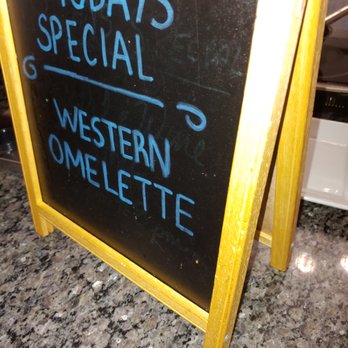 TODAYS
SPECIAL
WESTERN
OMELETTE